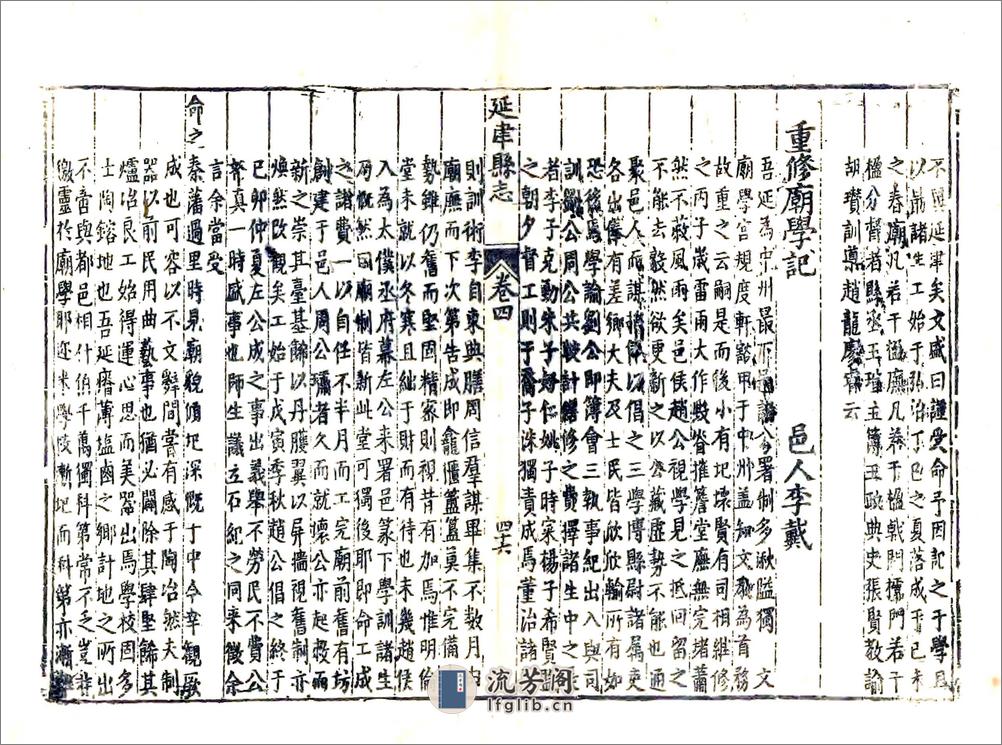 不匯延津矣文盛曰謹受命予因記之于學且
以勗諸生工始于弘治丁巳之夏落成于己未
之春廟凡若干楹廡凡若干楹戟門櫺門若干
楹分督者縣丞王瑄主簿王歐典史張賢教諭
胡瓚訓導趙龍云
重修廟學記
邑人李戴
吾延為中州最下邑公署制多湫隘獨文
廟學宮規度軒豁甲于中州蓋知文教為首務
故重之云嗣是而後小有圯壞賢有司相維修
之丙子歲雷雨大作殿脊摧簷堂廡無完堵蕭
然不蔽風雨矣邑侯趙公視學見之低回留之
不能去毅然欲更新之以公藏虛勢不能也廼
聚邑人而謀捐俸以倡之三學博縣尉諸屬吏
各出俸有差縉紳大夫及士民皆欣欣輸所有如
恐後焉學諭劉公即簿會三執事紀出入與司
訓鄒公周公共計繕修之費擇諸生中之
者李子克勤朱子好仁姚子時寀楊子希賢
之朝夕督工則于喬子洙獨責成焉董治諸
延津縣志
卷四
四十六
則訓術李自東與膳周信羣謀畢集不數月由
廟廡而下次第告成即龕僊簠簋莫不完備
勢雖仍舊而堅固精察則視昔有加焉惟明倫
堂未就以冬寒且絀于財而有待也未幾趙侯
入為太僕丞府幕左公來署邑篆下學訓諸生
周慨然曰廟制皆新此堂可獨後耶即命工成
之諸費一以自任不半月而工完廟前舊有坊
創建于邑人周公繡者久而就壞公亦起廢而
新之崇其臺基飾以丹雘翼以屏墻視舊制亦
煥然改觀矣工成于戊寅季秋趙公倡之終于
己卯仲夏左公成之事出義舉不勞民不費公
帑真一時盛事也師生議立石紀之同來徵余
言余當受
命之秦藩過里時見廟貌傾圯深慨于中今幸觀厥
成也可容以不文辭間嘗有感于陶冶然夫制
器以前民用曲藝事也猶必闢除其肆堅飾其
爐冶良工始得運心思而美器出焉學校固多
士陶鎔之地也吾延瘠薄塩鹵之鄉計地之所出
不啻與都邑相什伯千萬獨科第常不乏豈非
徼靈於廟學耶邇來學校漸圯而科第亦漸
流芳阁
lfglib.cn